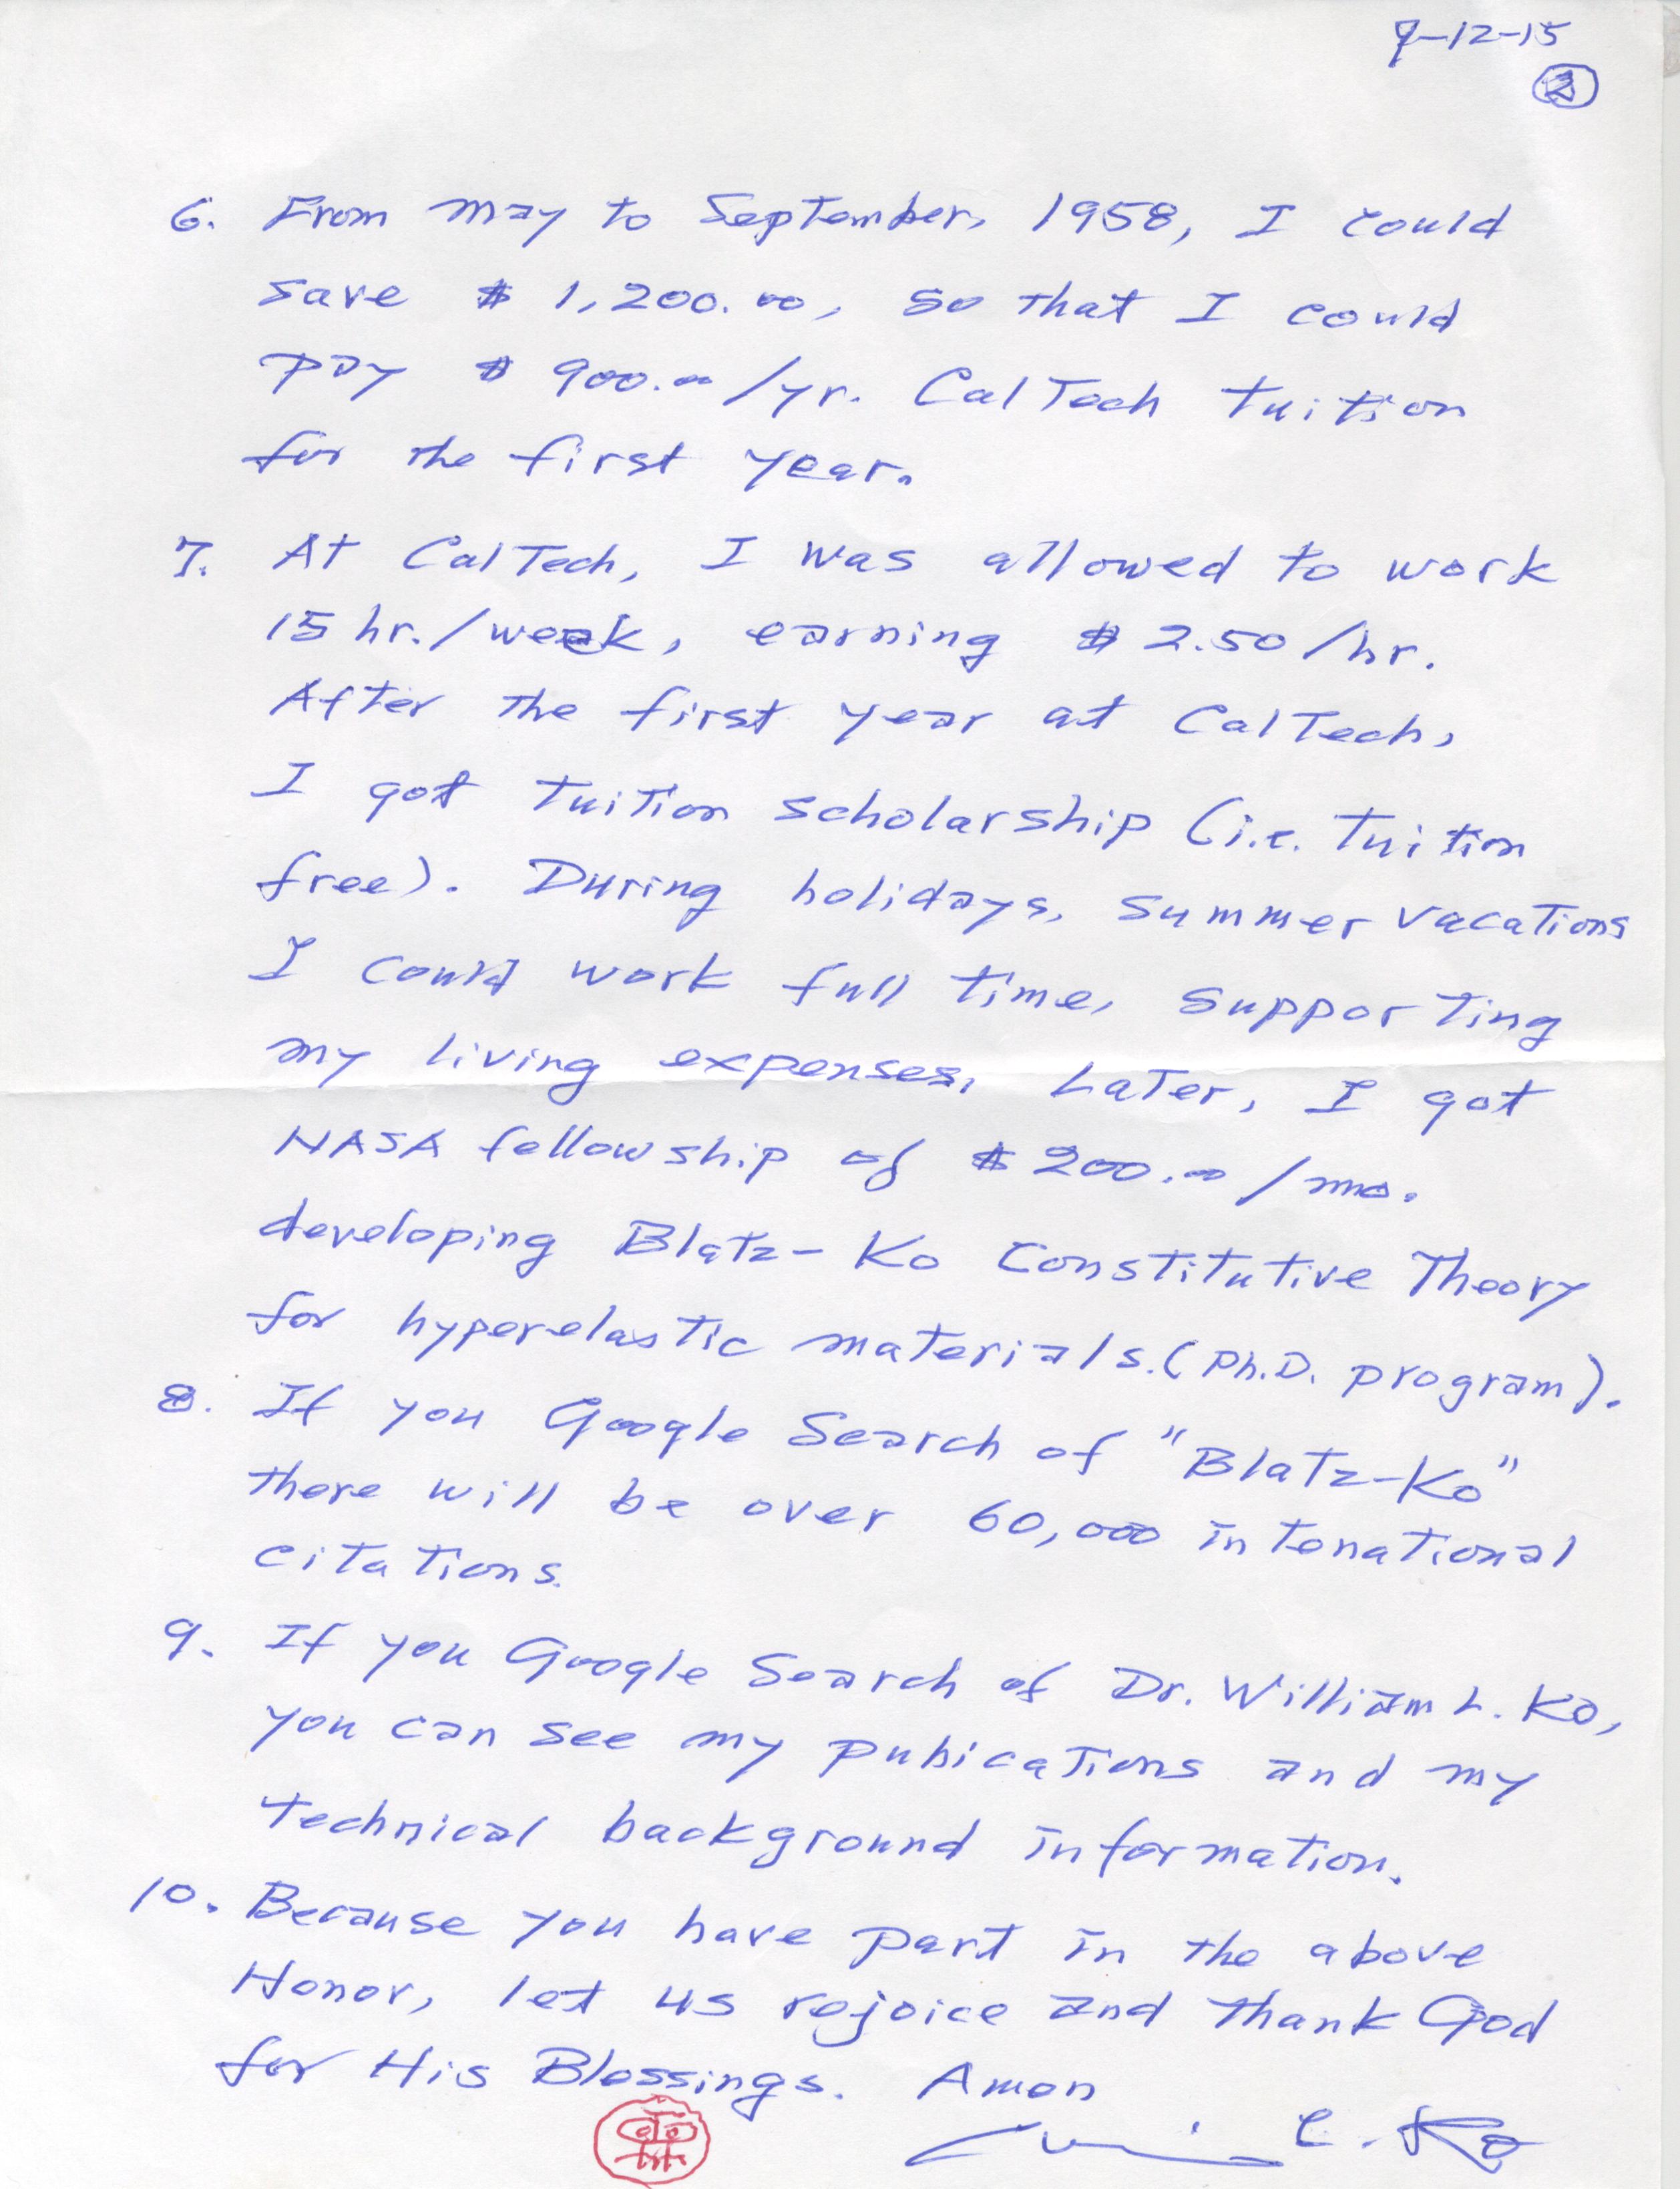 9-12-15
2
6. From may to September, 1958, I could
save $ 1,200.00, so that I could
pay $ 900.00/yr. CalTech tuition
for the first year.
7. At CalTech, I was allowed to work
15 hr./week, earning $ 2.50/hr.
After the first year at CalTech,
I got tuition scholarship (i.e. tuition
free). During holidays, summer vacations
I could work full time, supporting
my living expenses, Later, I got
NASA fellowship of $ 200.00/mo.
developing Blatz-Ko Constitutive Theory
for hyperelastic materials. (Ph.D. program).
8. If you Google Search of "Blatz-Ko"
there will be over 60,000 intenational
citations.
9. If you Google Search of Dr. William L. Ko,
you can see my pubications and my
technical background information.
10. Because you have part in the above
Honor, let us rejoice and thank God
for His Blessings. Amen
L. Ko